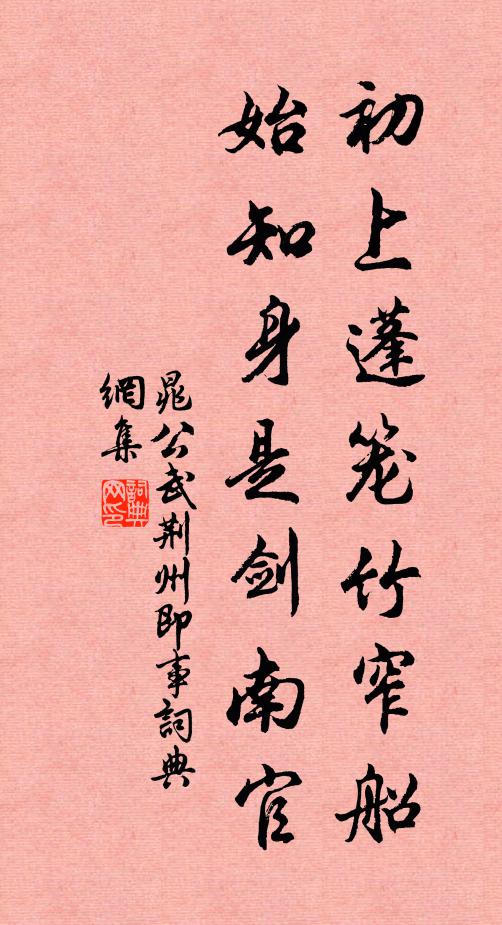 初上蓬笼竹窄船
始知身是剑南官
晁公武荆州即事詞典
網集
詞典
网印